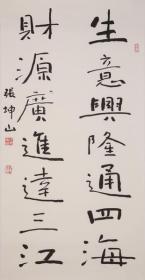 生意興隆通四海
財源廣進達三江
張坤山